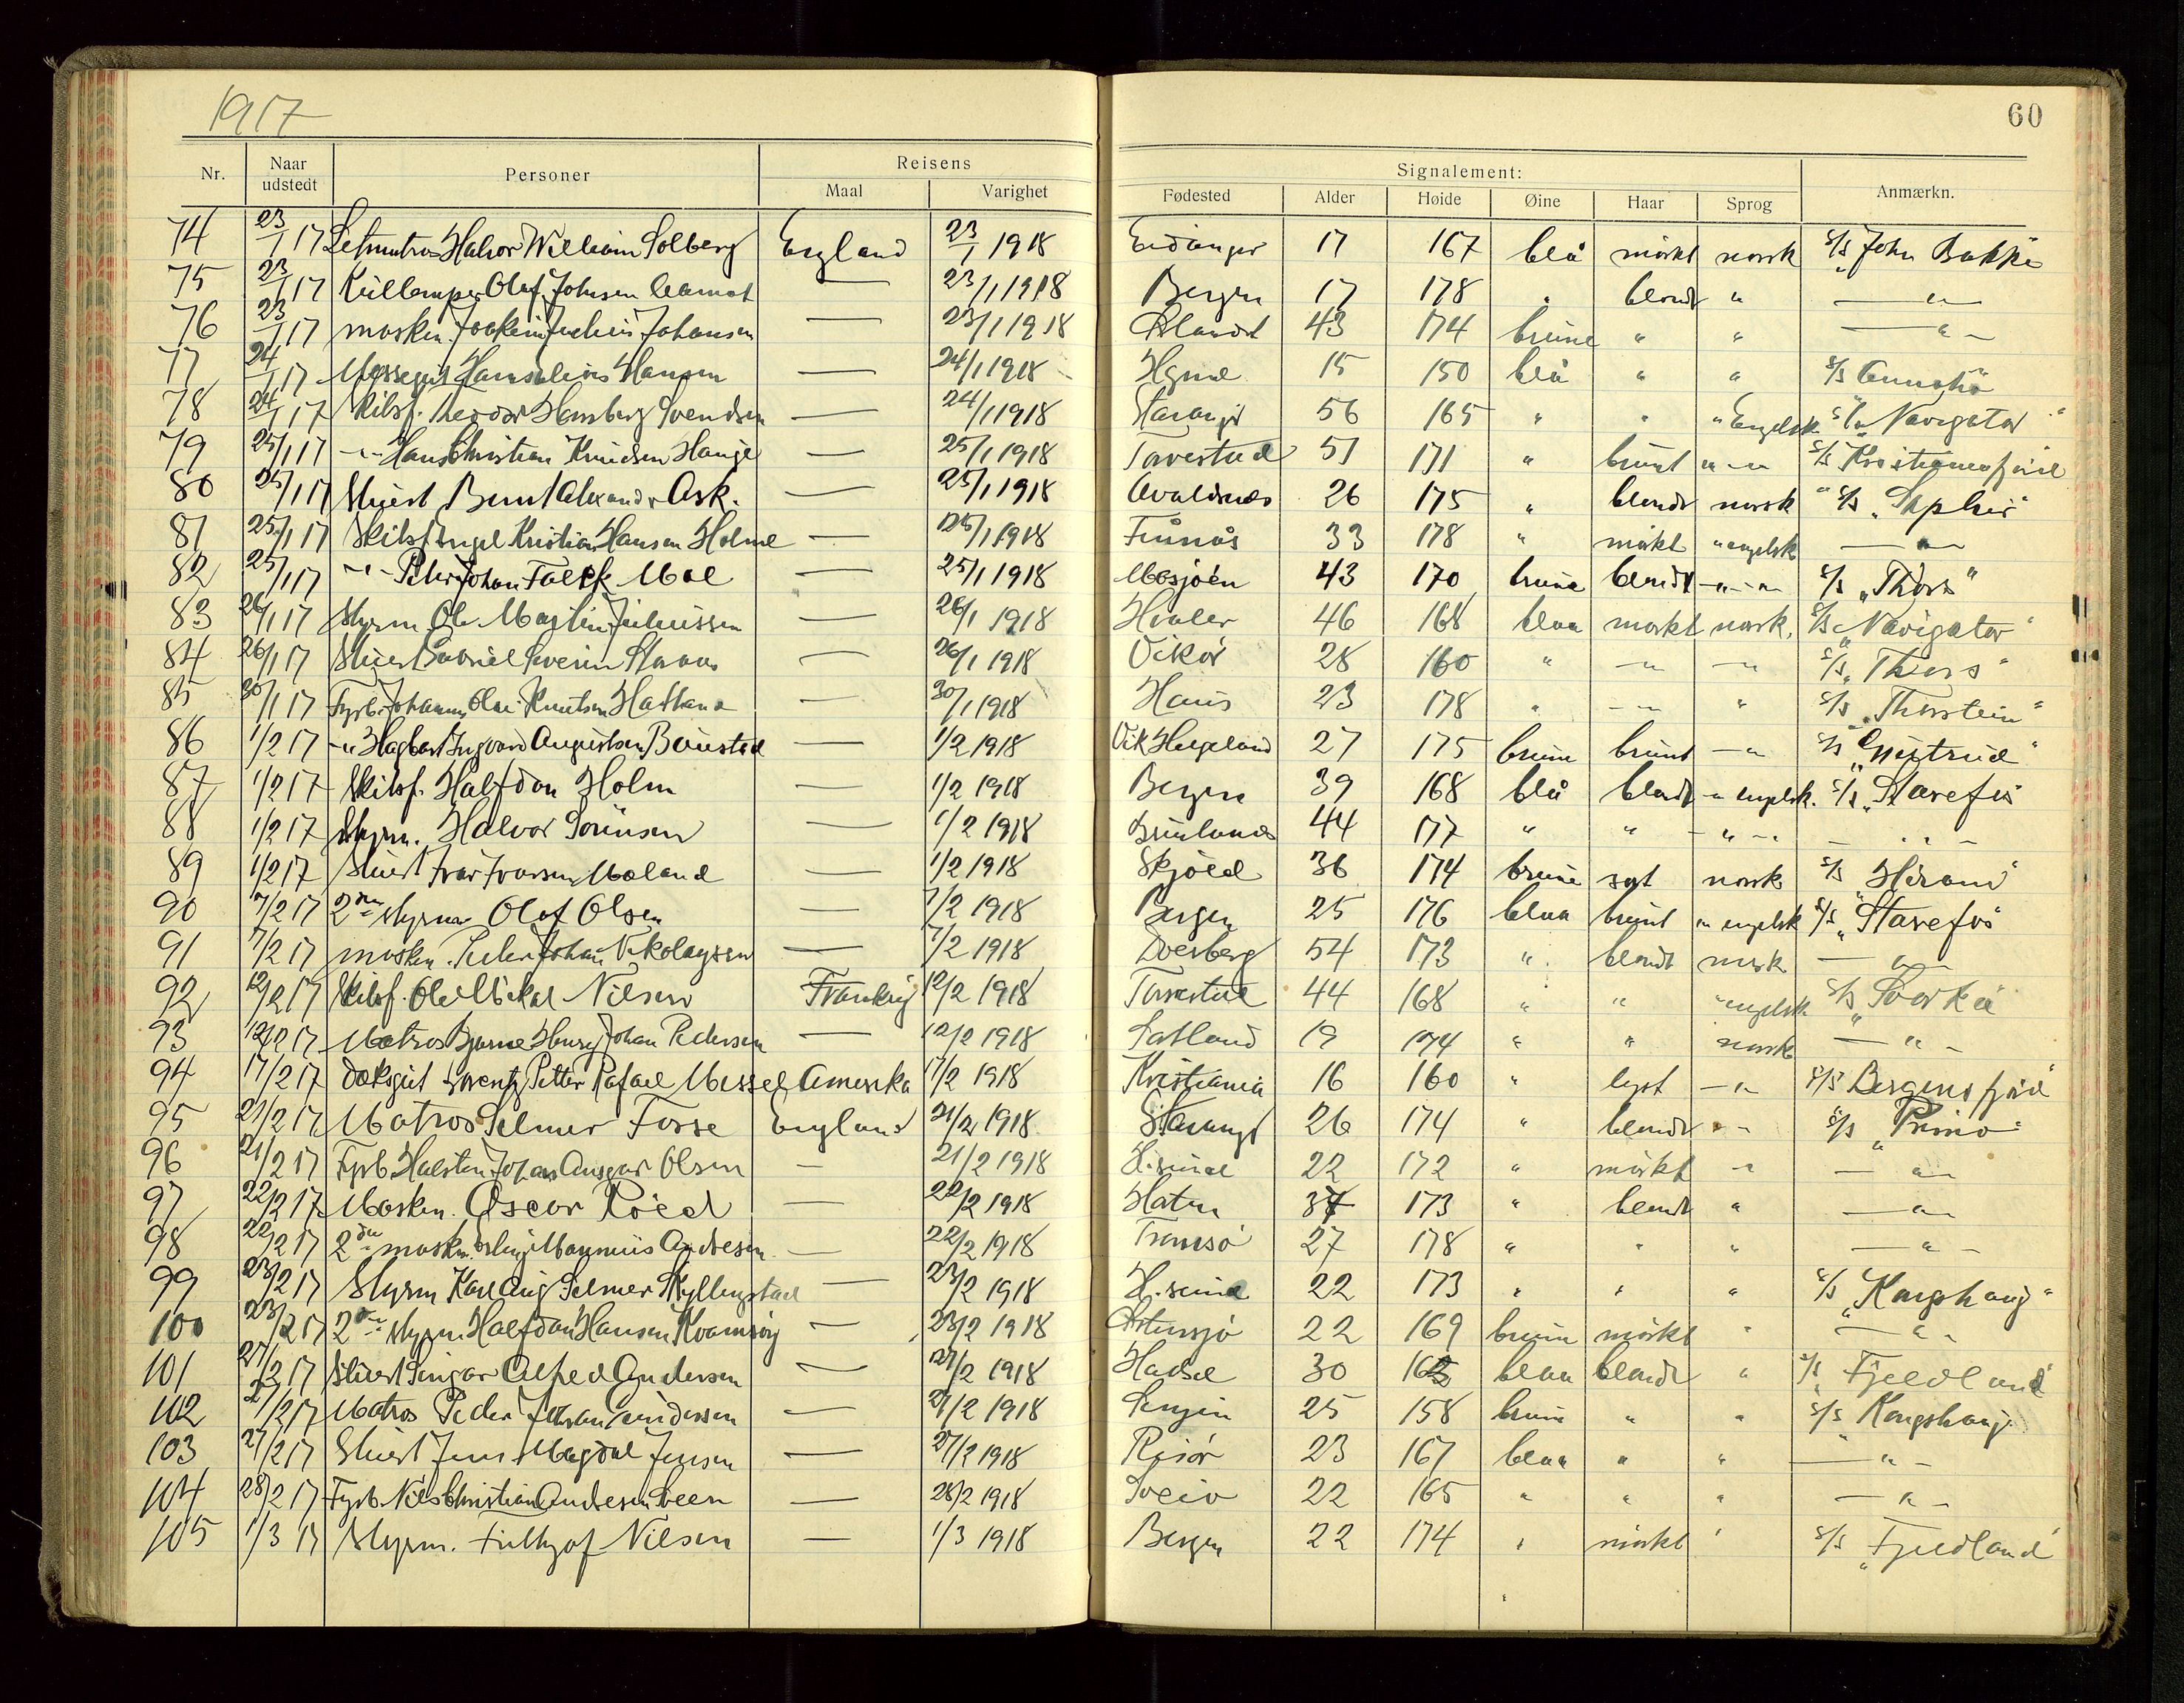 1917
60
Nr. Naar udstedt Personer Reisens Maal Varighet Signalement: Fødested Alder Høide Øine Haar Sprog Anmærkn.
74 23/1 17 Letmatros Halvor William Solberg England 23/1 1918 Eidanger 17 167 blå mörkt norsk S/S "John Bakke
75 23/1 17 Olaf Johnsen — 23/1 1918 Bergen 17 178 " blondt " — " —
76 23/1 17 maskin. Joakim Julius Johansen — 23/1 1918 43 174 brune " " — " —
77 24/1 17 Messegut Hansen — 24/1 1918 15 150 blå " " S/S
78 24/1 17 Skibsf. Teodor Svendsen — 24/1 1918 Stavanger 56 165 " " " Engelsk S/S "Navigator"
79 25/1 17 - " - Hans Christian Knudsen Hauge — 25/1 1918 Torvestad 51 171 " brunt " - " S/S Kristianiafjord
80 25/1 17 Stuert Bernt Alexander Ask. — 25/1 1918 Avaldsnes 26 175 " blondt norsk S/S "Saphir"
81 25/1 17 Skibsf. Kristian Hansen Holme — 25/1 1918 Finnås 33 178 " mörkt " engelsk — " —
82 25/1 17 - " - Peder Johan Falck Moe — 25/1 1918 Mosjöen 43 170 brune blondt - " - " S/S "Thors"
83 26/1 17 Styrm Ole Martin Juliussen — 26/1 1918 Hvaler 46 168 blaa mörkt norsk. S/S "Navigator"
84 26/1 17 Stuert Gabriel Severin — 26/1 1918 Vikör 28 160 " - " - " S/S "Thors"
85 30/1 17 Fyrb. Johannes Olai Knutsen — 30/1 1918 Haus 23 178 " - " " S/S "Thorstein"
86 1/2 17 - " Hagbart Ingvard Augustsen Baustad — 1/2 1918 Vik Helgeland 27 175 brune brunt - " S/S
87 1/2 17 Skibsf. Halfdan Holm — 1/2 1918 Bergen 39 168 blå blondt - " engelsk. S/S "Starefos
88 1/2 17 Styrm. Halvor Sörensen — 1/2 1918 Brunlanes 44 177 " " - " - " -
89 1/2 17 Stuert Ivar Ivarsen Moland — 1/2 1918 Skjold 36 174 brune sort norsk S/S "Hiram"
90 7/2 17 2den styrm Olaf Olsen — 7/2 1918 Bergen 25 176 blaa brunt " engelsk S/S "Starefos
91 7/2 17 maskin. Peder Johan Nikolaysen — 7/2 1918 54 173 " blondt norsk — " —
92 12/2 17 Skibsf. Ole Mikal Nilsen Frankrig 12/2 1918 Torvestad 44 168 " " " engelsk S/S "Sorka"
93 12/2 17 Matros Bjarne Henry Johan Pedersen — 12/2 1918 Låtland 19 174 " " norsk — " -
94 17/2 17 Dæksgut Lorentz Petter Rafael Messel Amerika 17/2 1918 Kristiania 16 160 " lyst - " S/S Bergensfjord"
95 21/2 17 Matros Selmer Fosse England 21/2 1918 Stavanger 26 174 " blondt " - S/S "Primo"
96 21/2 17 Fyrb Halsten Johan Ansgar Olsen — 21/2 1918 H.sund 22 172 " mörkt - " — " —
97 22/2 17 Maskin. Oscar Röed — 22/2 1918 173 " blondt " — " —
98 22/2 17 2den maskin. Magnus Andresen — 22/2 1918 Tromsö 27 178 " " " — " —
99 23/2 17 Styrm Karl Aug Selmer Skyllingstad — 23/2 1918 H.sund 22 173 " " " S/S "Kongshaug"
100 23/2 17 2den styrm. Halfdan Hansen Kvamsöy — 23/2 1918 22 169 brune mörkt " — " -
101 27/2 17 Stuert Alfred Andersen — 27/2 1918 Hadsel 30 blaa blondt " S/S "Fjeldland"
102 27/2 17 Matros Peder Johan Andersen — 27/2 1918 Lenjen 25 158 brune " " S/S Kongshaug
103 27/2 17 Stuert Jens Magdal Jensen — 27/2 1918 Risör 23 167 blaa " " — " -
104 28/2 17 Fyrb. Nils Christian Andresen Sveen — 28/2 1918 Sveio 22 165 " " " — " -
105 1/3 17 Styrm. Fritjof Nilsen — 1/3 1918 Bergen 22 174 " mörkt " S/S "Fjeldland"